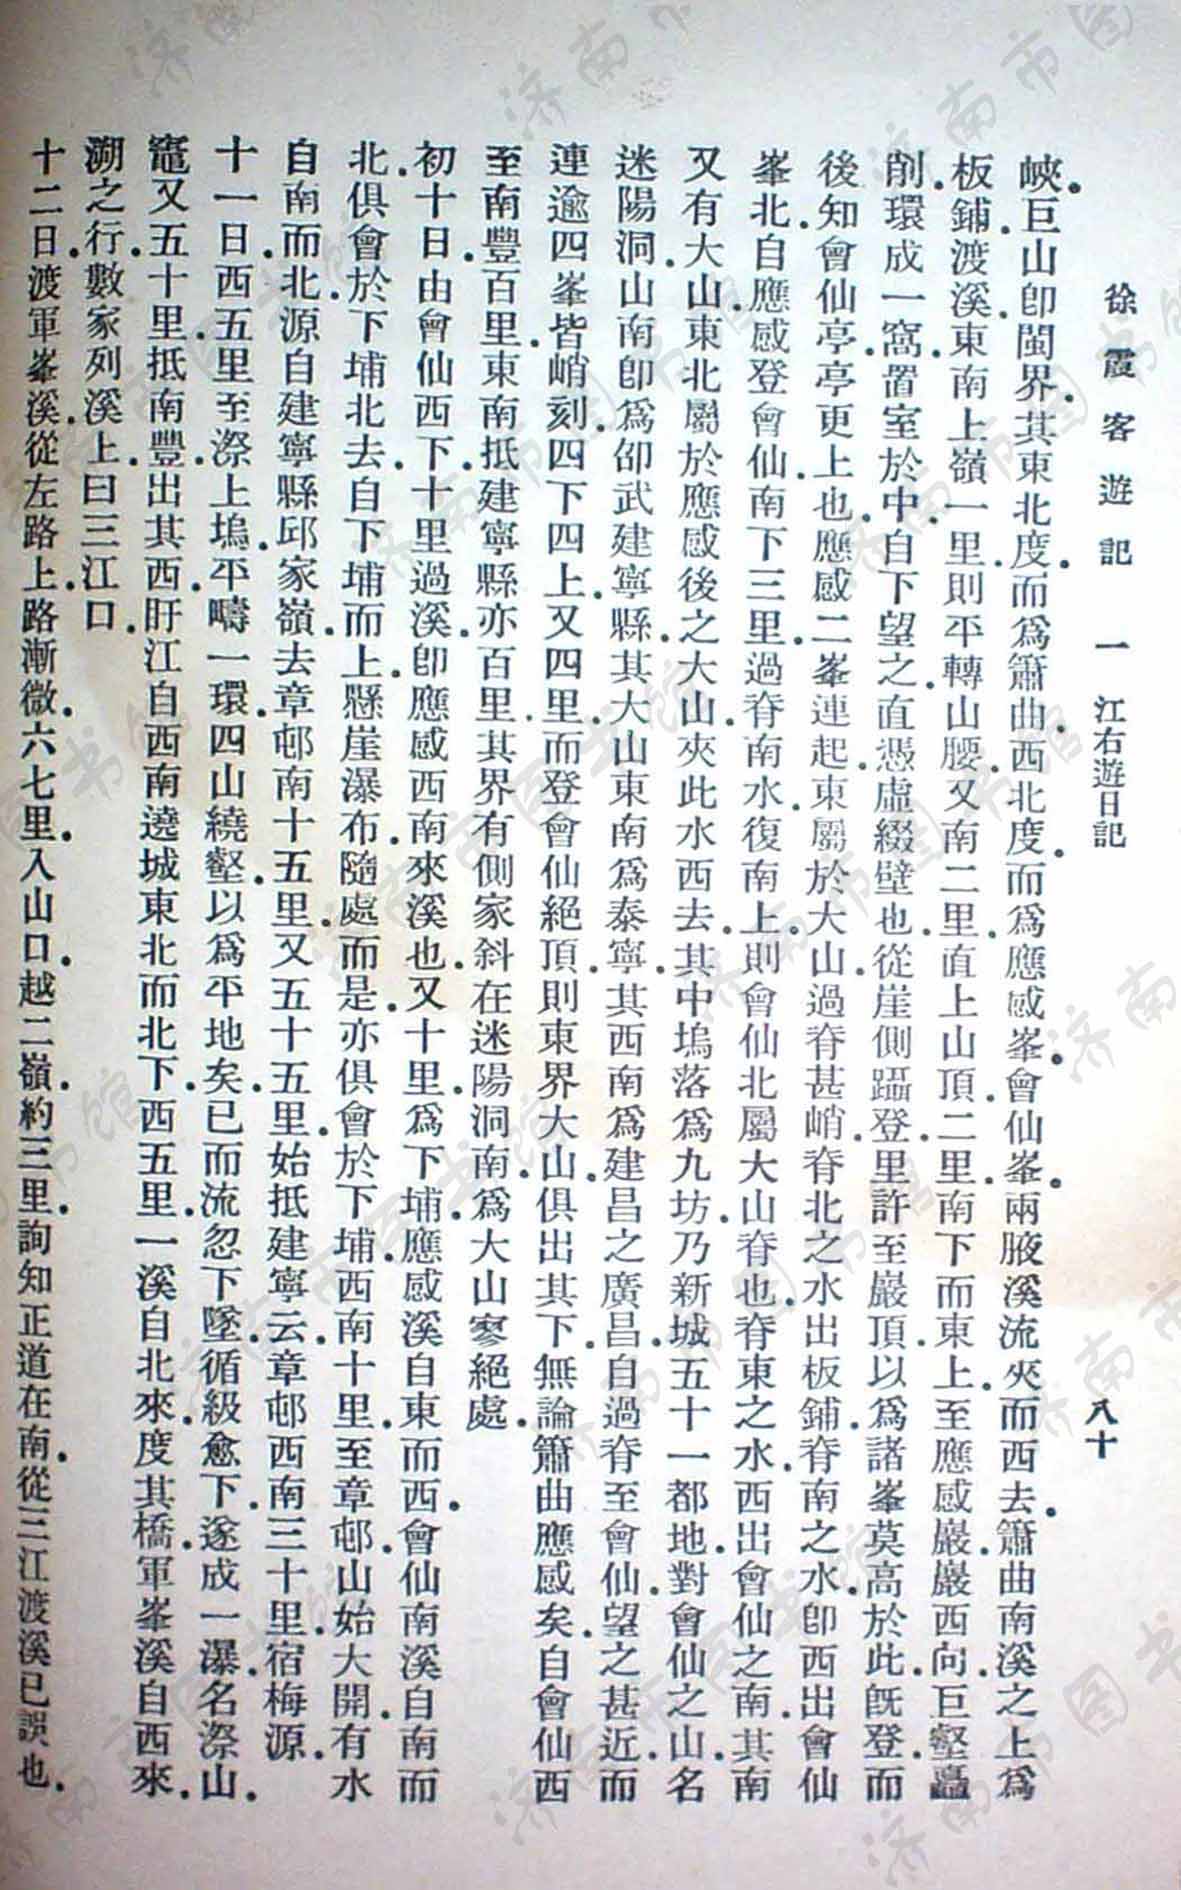 徐霞客遊記 一 江右遊日記 八十
峽.巨山卽閩界.其東北度.而爲簫曲.西北度.而爲應感峯.會仙峯.兩腋溪流夾而西去.簫曲南溪之上爲
板鋪.渡溪.東南上嶺一里.則平轉山腰.又南二里.直上山頂.二里南下而東上.至應感巖.巖西向.巨壑矗
削.環成一窩.置室於中.自下望之.直憑虛綴壁也.從崖側躡登.里許至巖頂.以爲諸峯莫高於此.旣登.而
後知會仙亭亭更上也.應感二峯連起.東屬於大山.過脊甚峭.脊北之水出板鋪.脊南之水.卽西出會仙
峯北.自應感登會仙.南下三里.過脊.南水.復南上.則會仙北屬大山脊也.脊東之水.西出會仙之南.其南
又有大山.東北屬於應感後之大山.夾此水西去.其中塢落爲九坊.乃新城五十一都地.對會仙之山.名
迷陽洞.山南卽爲邵武建寧縣.其大山東南爲泰寧.其西南爲建昌之廣昌.自過脊至會仙.望之甚近.而
連逾四峯.皆峭刻.四下四上.又四里.而登會仙絕頂.則東界大山.俱出其下.無論簫曲應感矣.自會仙西
至南豐百里.東南抵建寧縣.亦百里.其界有側家斜在迷陽洞南.爲大山寥絕處.
初十日由會仙西下.十里過溪.卽應感西南來溪也.又十里.爲下埔.應感溪自東而西.會仙南溪自南而
北.俱會於下埔北去.自下埔而上.懸崖瀑布.隨處而是.亦俱會於下埔.西南十里.至章邨.山始大開.有水
自南而北.源自建寧縣邱家嶺.去章邨南十五里.又五十五里.始抵建寧云.章邨西南三十里.宿梅源.
十一日西五里.至漈上塢.平疇一環.四山繞壑.以爲平地矣.已而流忽下墜.循級愈下.遂成一瀑.名漈山
竈.又五十里.抵南豐.出其西.盱江自西南遶城東北而北下.西五里.一溪自北來.度其橋.軍峯溪自西來.
溯之行.數家列溪上.曰三江口.
十二日渡軍峯溪.從左路上.路漸微.六七里.入山口.越二嶺.約三里.詢知正道在南.從三江渡溪已誤也.